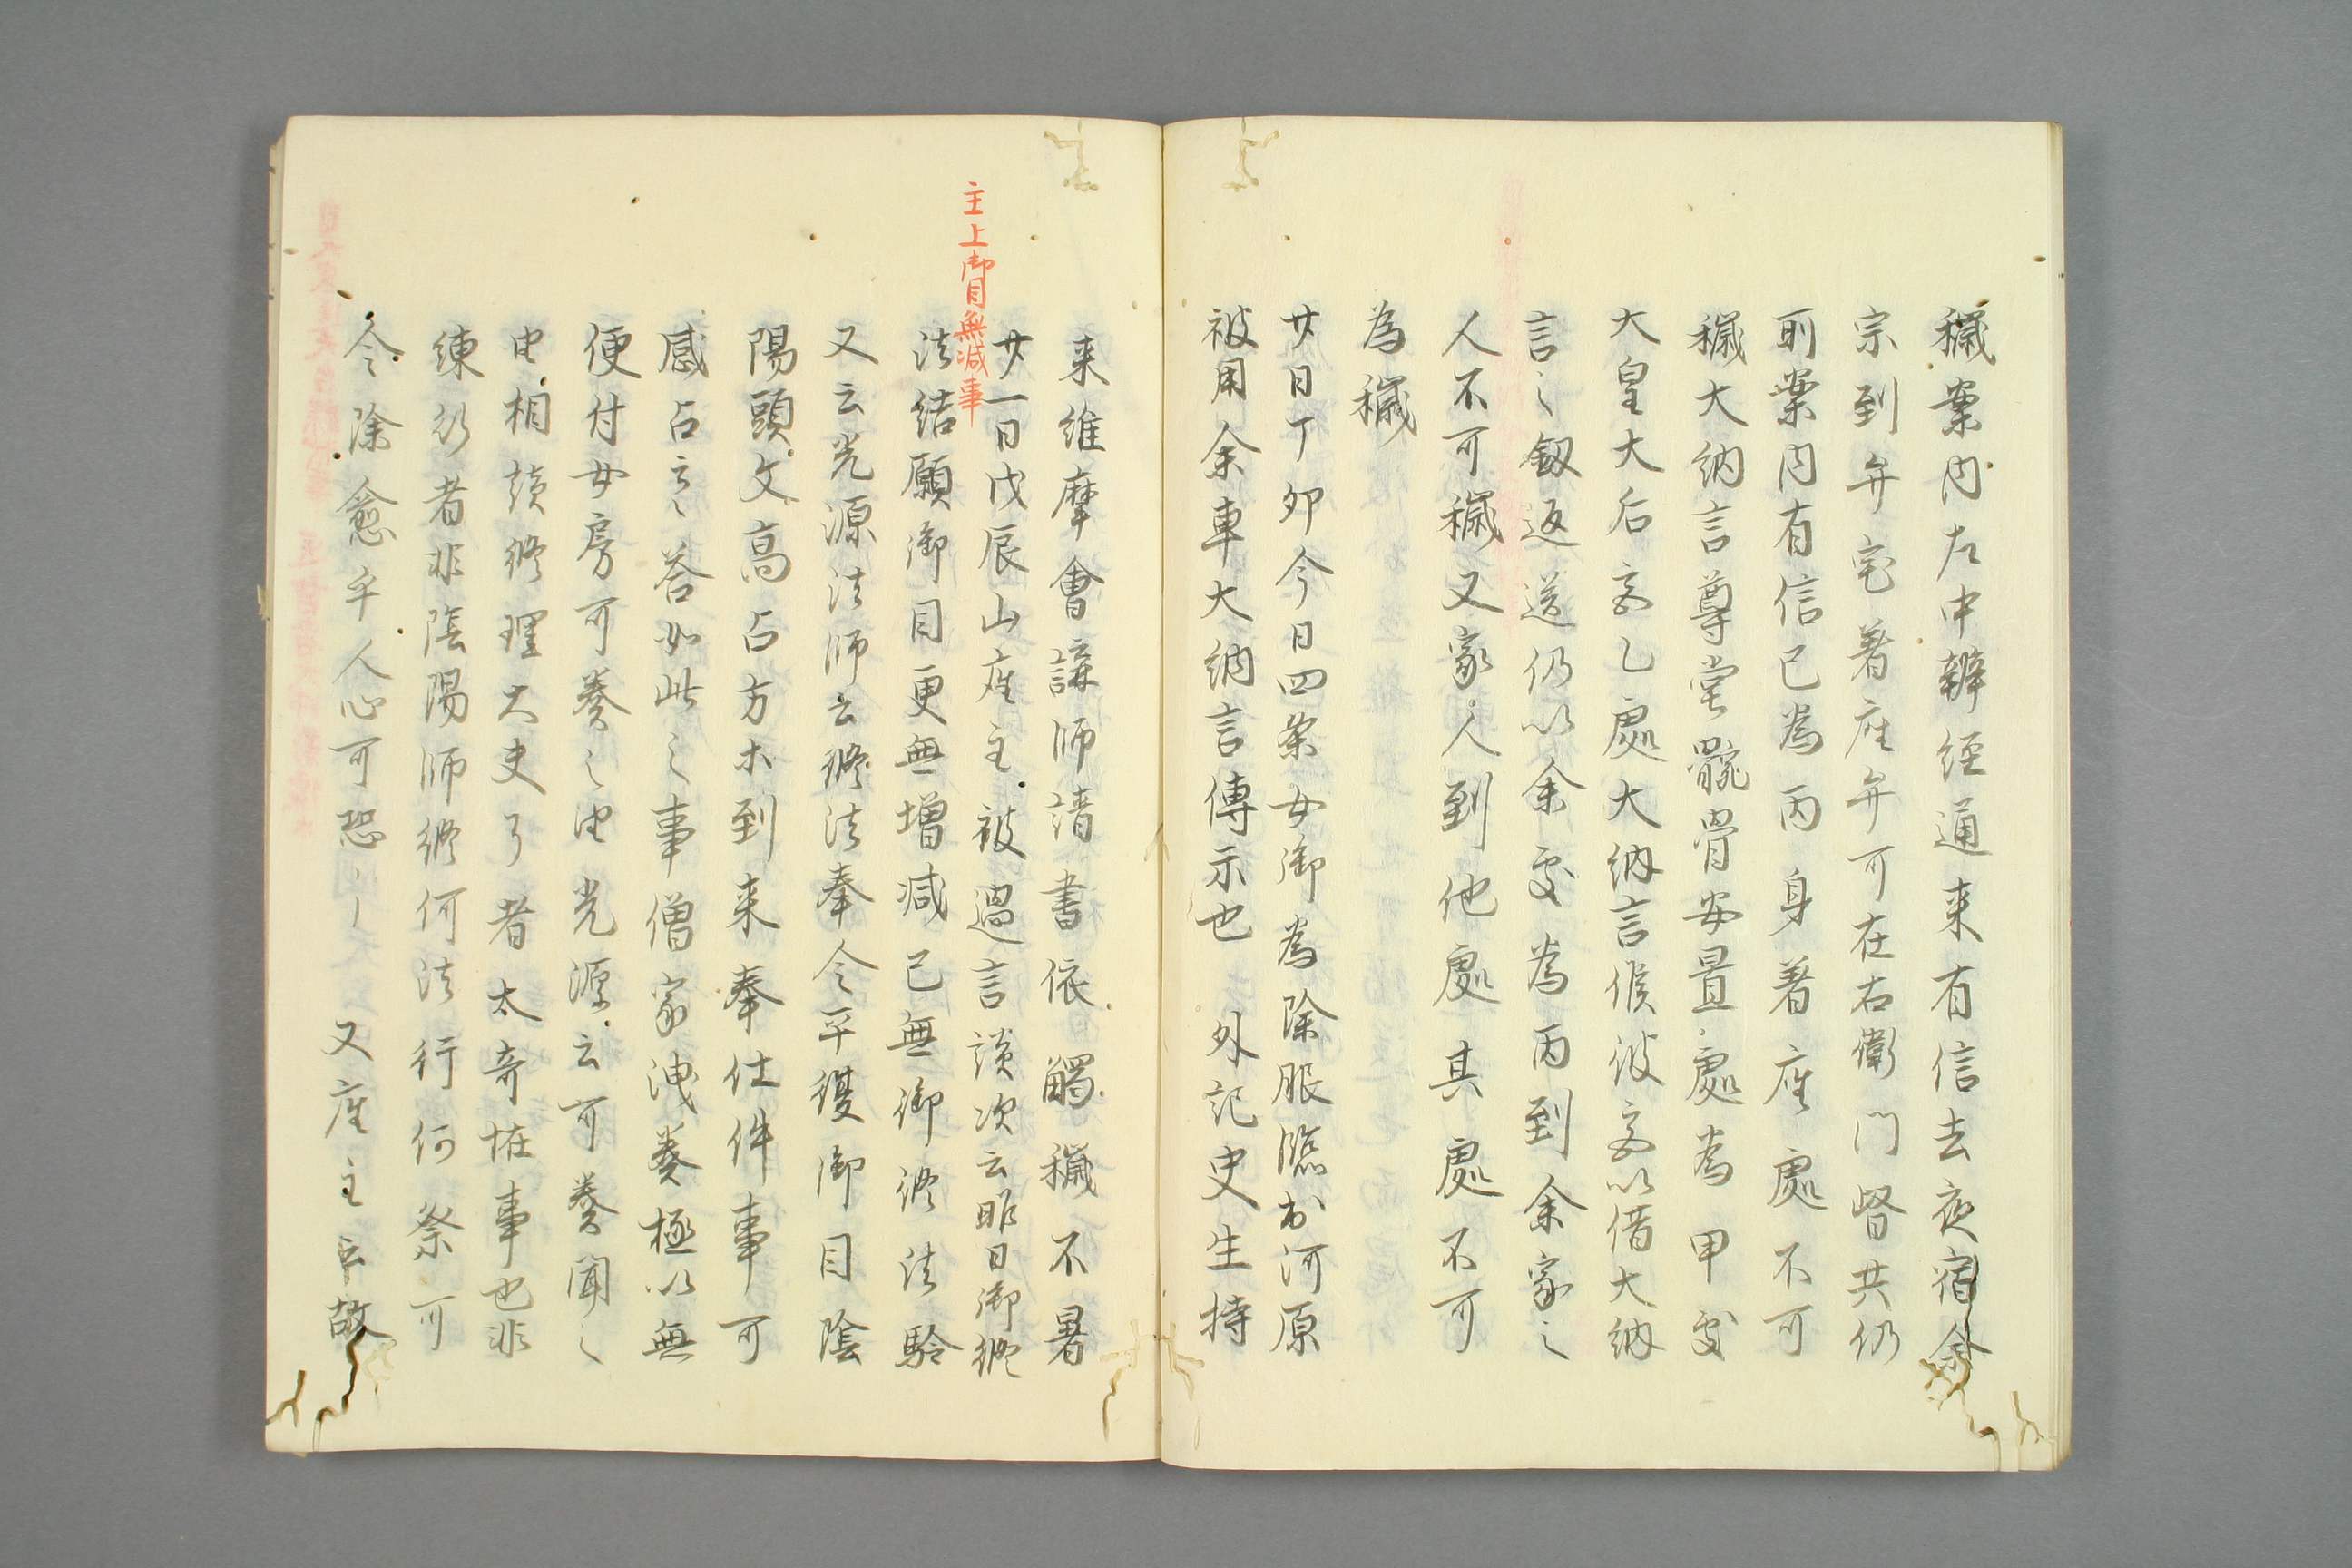 穢案内左中辨経通来有信去夜宿余
宗到弁宅著座弁可在右衛門督共仍
前案内有信已為丙身著座處不可
穢大納言尊堂骸骨安置處為甲交
大皇大后宮乙處大納言候彼宮以借大納
言之釼返送仍以余家為丙到余家之
人不可穢又家人到他處其處不可
為穢
廿日丁卯今日四条女御為除服臨於河原
被用余車大納言傳示也 外記史生持
主上御目無減事
来維摩會講師請書依觸穢不署
廿一日戊辰山座主被過言談次云昨日御修
法結願御目更無増減已無御修法験
又云光源法師云修法奉令平復御目陰
陽頭文高占方ホ到来奉仕件事可
感占之云々答如此之事僧家洩奏極以無
便付女房可奏之由光源云可奏聞之
由相談修理大夫了者太奇恠事也非
練行者非陰陽師修何法行何祭可
令除愈乎人心可恐々々 又座主云故